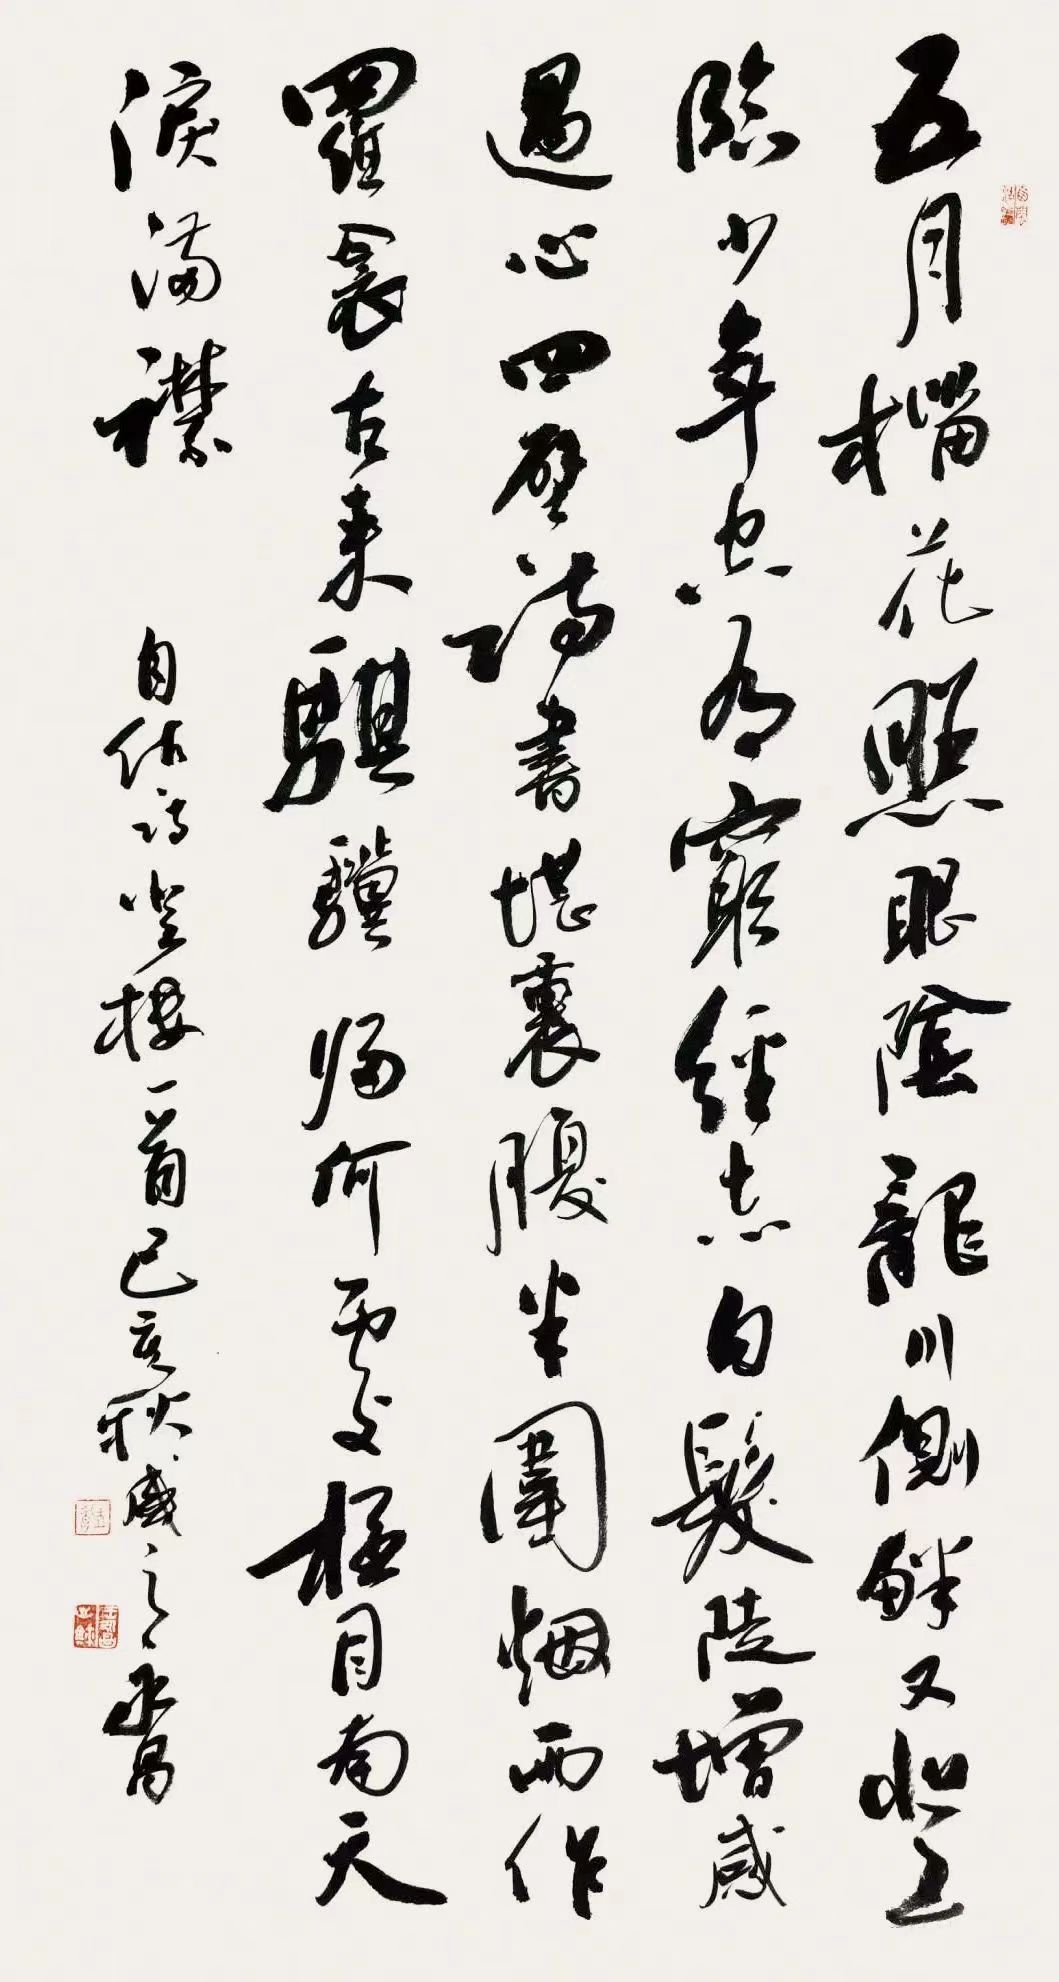 五月榴花照眼陰龍川側畔又登
臨少年空有窮經志白髮陡增感
遇心四壁詩書堪裹腹半圍烟雨作
羅衾古來騏驥歸何處極目南天
淚滿襟 自作詩登樓一首己亥秋盛之